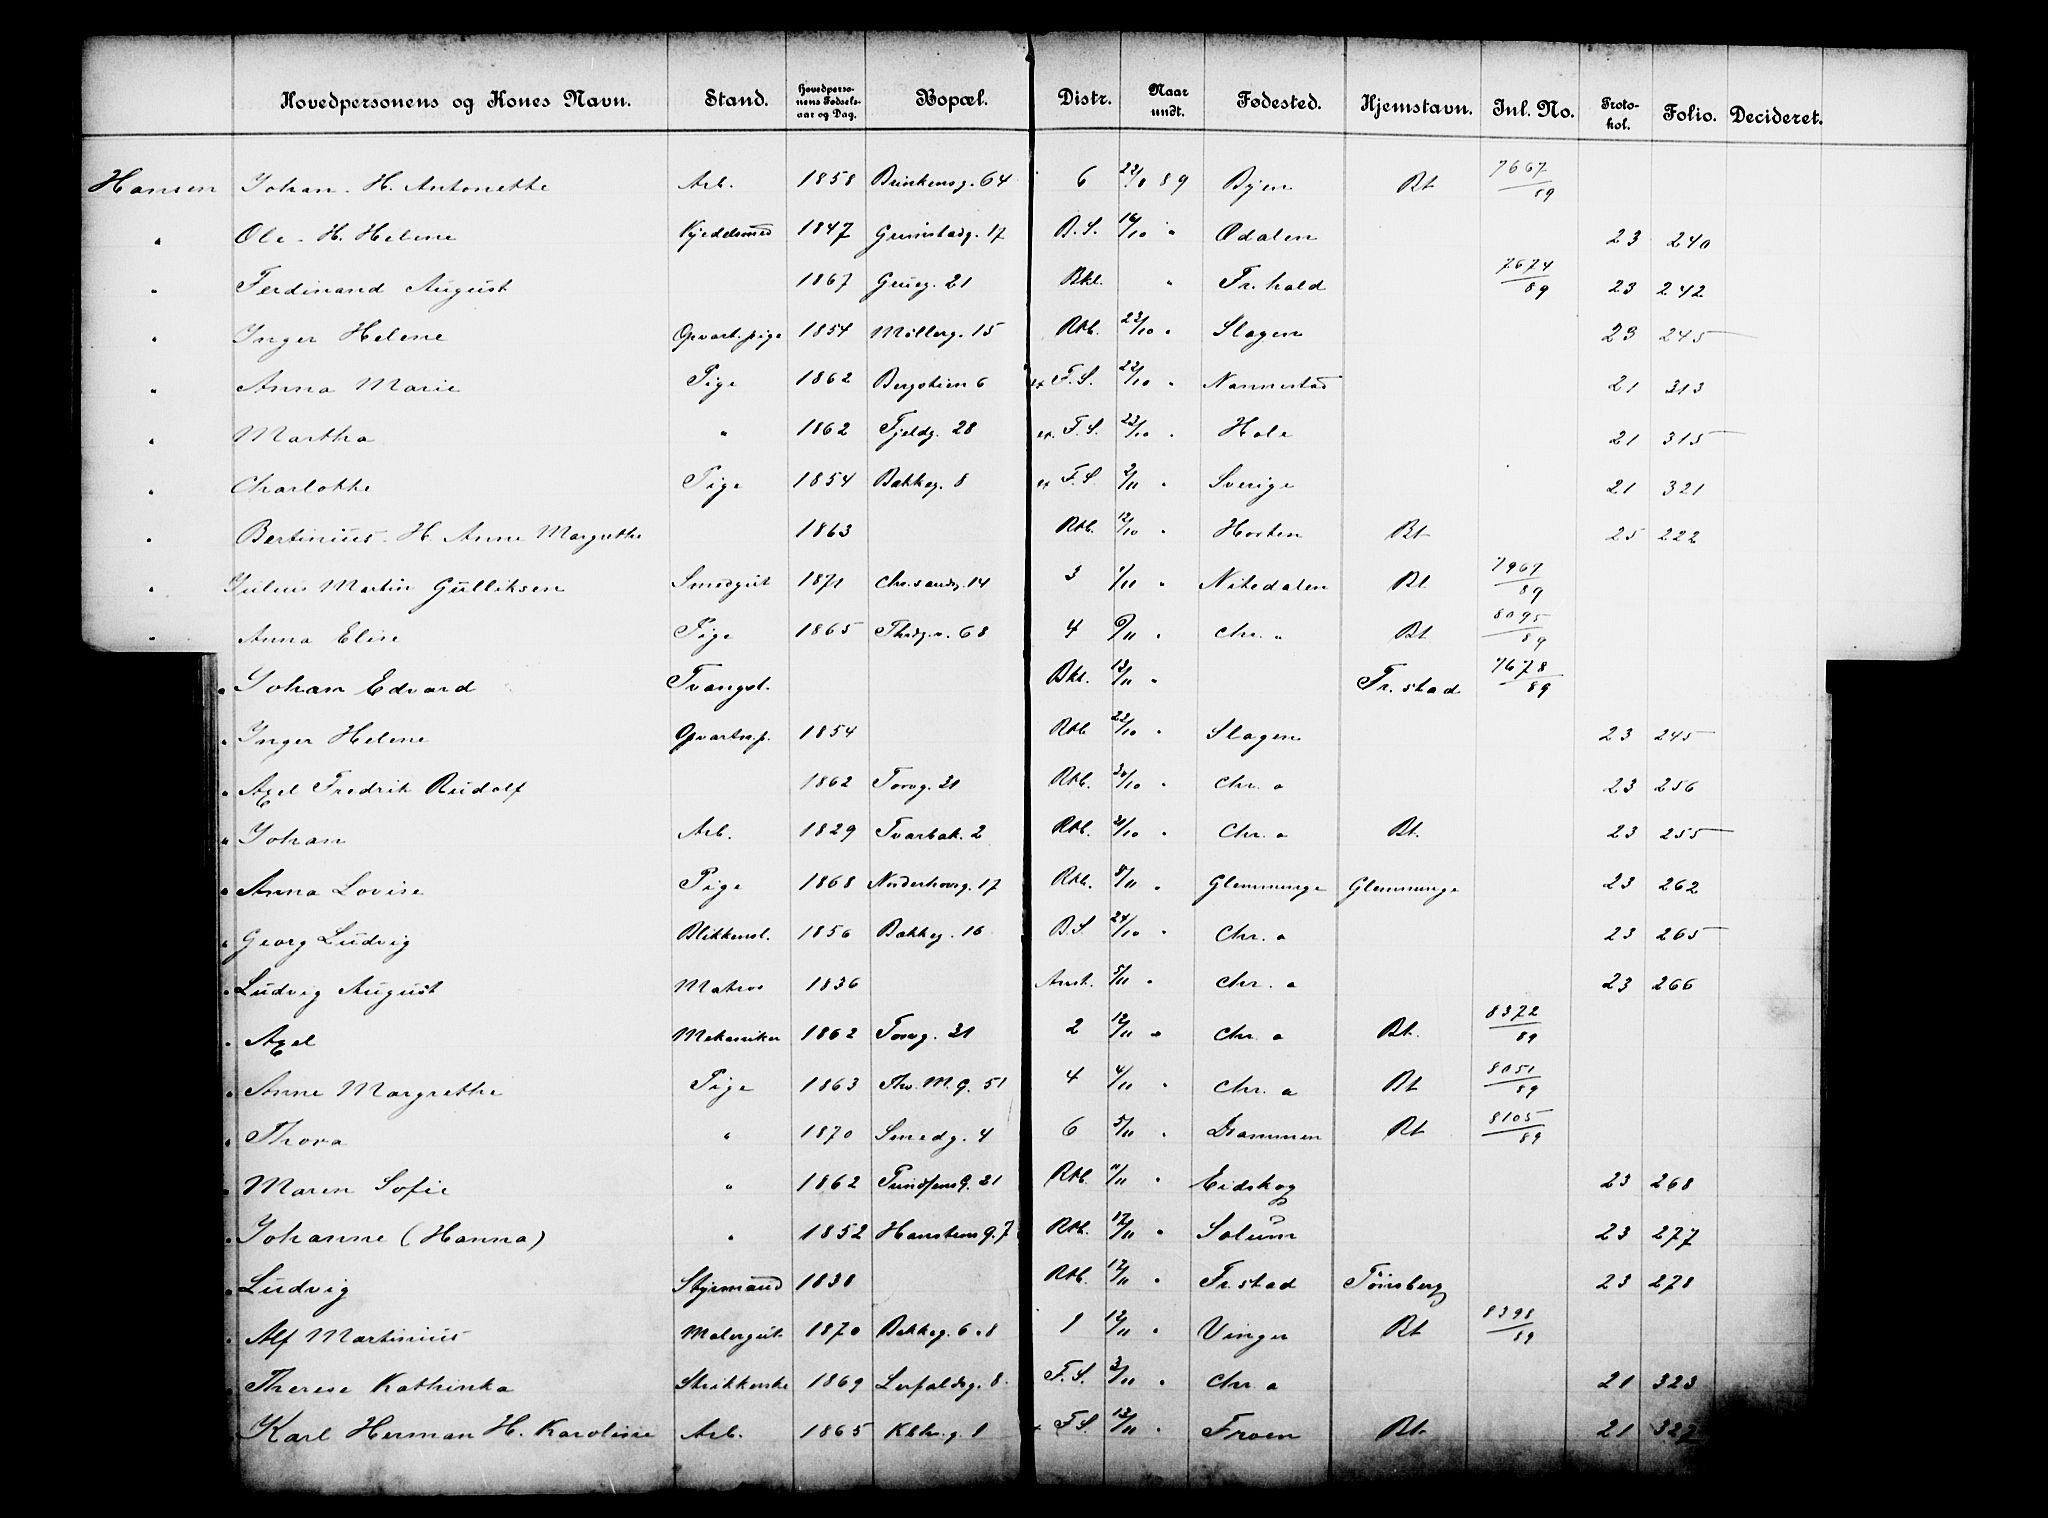 Hovedpersonens og Kones Navn. Stand. Hovedpersonens Fødselsaar og Dag. Bopæl. Distr. Naar undt. Fødested. Hjemstavn. Inl. No. Protokol. Folio. Decideret.
Hansen Johan. H. Antonette Arb. 1858 Brinkensg. 64 6 22/8 89 Byen Bt 7667/89
" Ole. H. Helene Kjedelsmed 1847 Grimstadg. 17 B.S. 16/10 " Odalen 23 240
" Ferdinand August 1867 Grueg. 21 Bkl. " Fr.hald 7674/89 23 242
" Inger Helene Opvart.pige 1854 Møllerg. 15 Rkb. 23/10 " Slagen 23 245
" Anna Marie Pige 1862 Bergstien 6 ex F.S. 22/10 " Nannestad 21 313
" Martha " 1862 Fjeldg. 28 ex. F.S. 23/10 " Hole 21 315
" Charlotte Pige 1854 Bakkeg. 8 ex F.S. 2/11 " Sverige 21 321
" Bertinius. H. Anne Margrethe 1863 Rkb. 12/10 " Horten Bt 25 222
" Julius Martin Gulliksen Smedgut 1871 Chr.sandsg. 14 3 1/11 " Nitedalen Bt 7967/89
" Anna Elise Pige 1865 Thdg. 68 4 6/11 " Chr. " Bt 8095/89
" Johan Edvard Tvangsl. Bkl. 13/11 " Fr.stad 7678/89
" Inger Helene Opvartn.p. 1854 Rkb 22/10 " Slagen 23 245
" Axel Fredrik Rudolf 1862 Torvg. 31 Rkb. 30/10 " Chr. a 23 256
" Johan Arb. 1829 Tværbak. 2 Rkb. 31/10 " Chr. a Bt. 23 255
" Anna Lovise Pige 1868 Norderhovg. 17 Rkb. 8/11 " Glemminge Glemminge 23 262
" Georg Ludvig Blikkensl. 1856 Bakkeg. 16 B.S. 24/10 " Chr. a 23 265
" Ludvig August Matros 1836 Anst. 5/11 " Chr. a 23 266
" Axel Mekaniker 1862 Torvg. 31 2 12/11 " Chr. a Bt. 8372/89
" Anne Margrethe Pige 1863 Thv. M. g. 51 4 4/11 " Chr. a Bt 8051/89
" Thora " 1870 Smedg. 4 6 5/11 " Drammen Bt 8105/89
" Maren Sofie " 1862 g. 21 Rkb. 11/11 " Eidskog 23 268
" Johanne (Hanna) " 1852 Hansteensg. 7 Rkb. 12/11 " Solum 23 277
" Ludvig Styrmand 1838 Rkb. 12/11 " Fr.stad Tønsberg 23 278
" Alf Martinius Malergut 1870 Bakkeg. 6 o 8 1 12/11 " Vinger Bt 8398/89
" Therese Kathinka Strikkerske 1869 Lerfaldsg. 8 F.S. 3/11 " Chr a 21 323
Karl Herman H. Karoline Arb. 1865 g. 1 x F.S. 13/11 " Froen Bt. 21 327